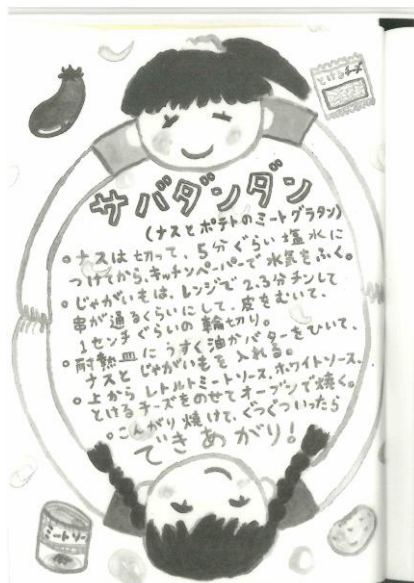 とけるチーズ
サバダンダン
(ナスとポテトのミートグラタン)
○ナスは切って、5分ぐらい塩水に
つけてから、キッチンペーパーで水気をふく。
○じゃがいもは、レンジで2.3分チンして
串が通るくらいにして、皮をむいて、
1センチぐらいの輪切り。
○耐熱皿にうすく油かバターをひいて、
ナスとじゃがいもを入れる。
○上からレトルトミートソース、ホワイトソース、
とけるチーズをのせてオーブンで焼く。
○こんがり焼けて、ぐつぐついったら
できあがり!
ミートソース